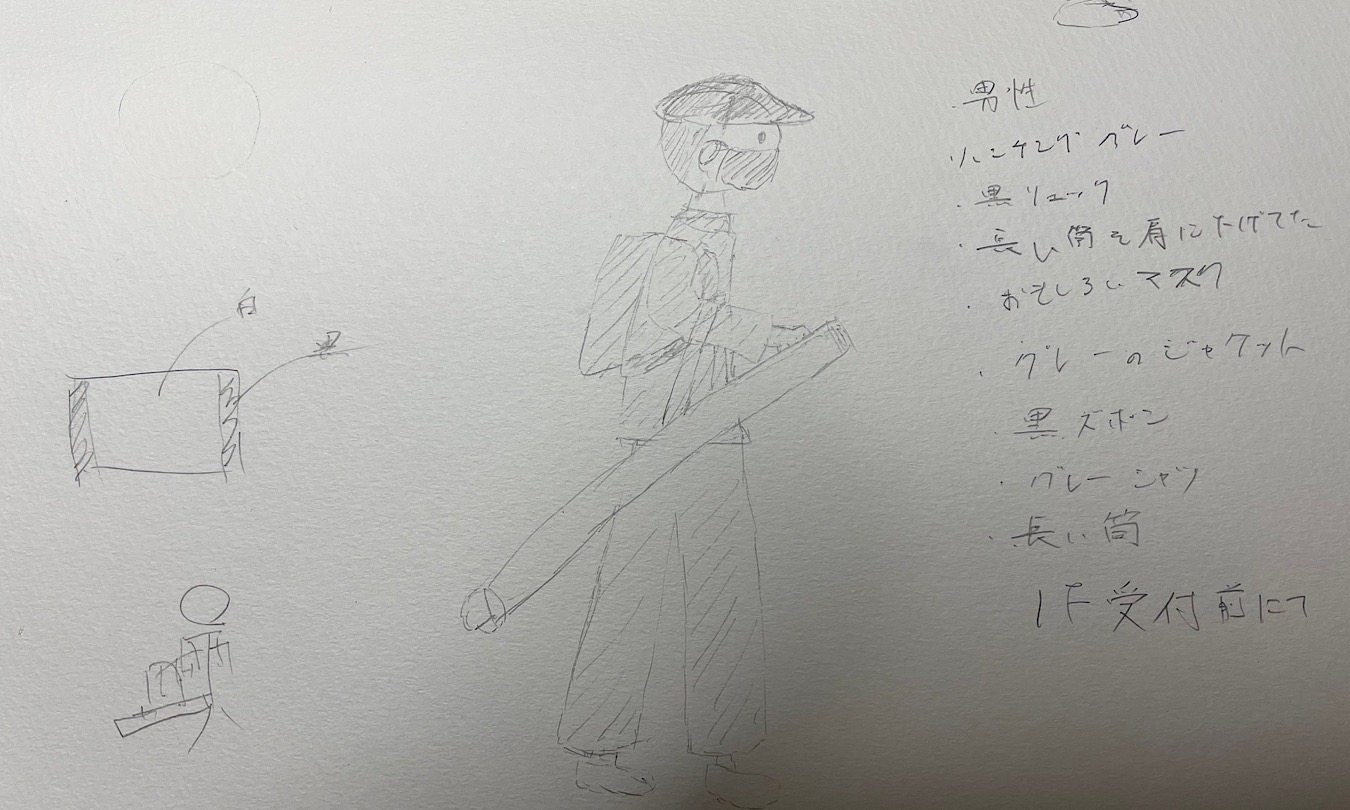 白
黒
・男性
ハンチング グレー
・黒リュック
・長い筒を肩に下げてた
・おもしろいマスク
・グレーのジャケット
・黒ズボン
・グレーシャツ
・長い筒
1F受付前にて